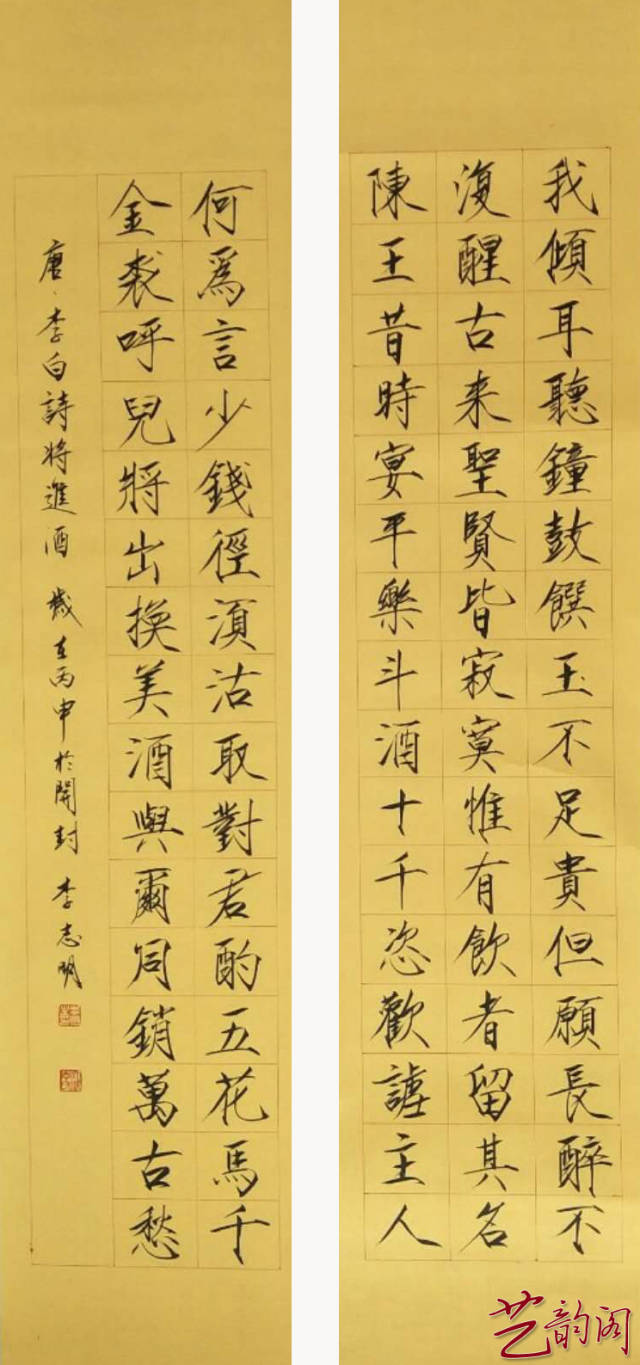 我傾耳聽鐘鼓饌玉不足貴但願長醉不
復醒古来聖賢皆寂寞惟有飲者留其名
陳王昔時宴平樂斗酒十千恣歡謔主人
何爲言少錢徑須沽取對君酌五花馬千
金裘呼兒將出換美酒與爾同銷萬古愁
唐、李白詩將進酒 歲在丙申於開封 李志明
艺韵阁